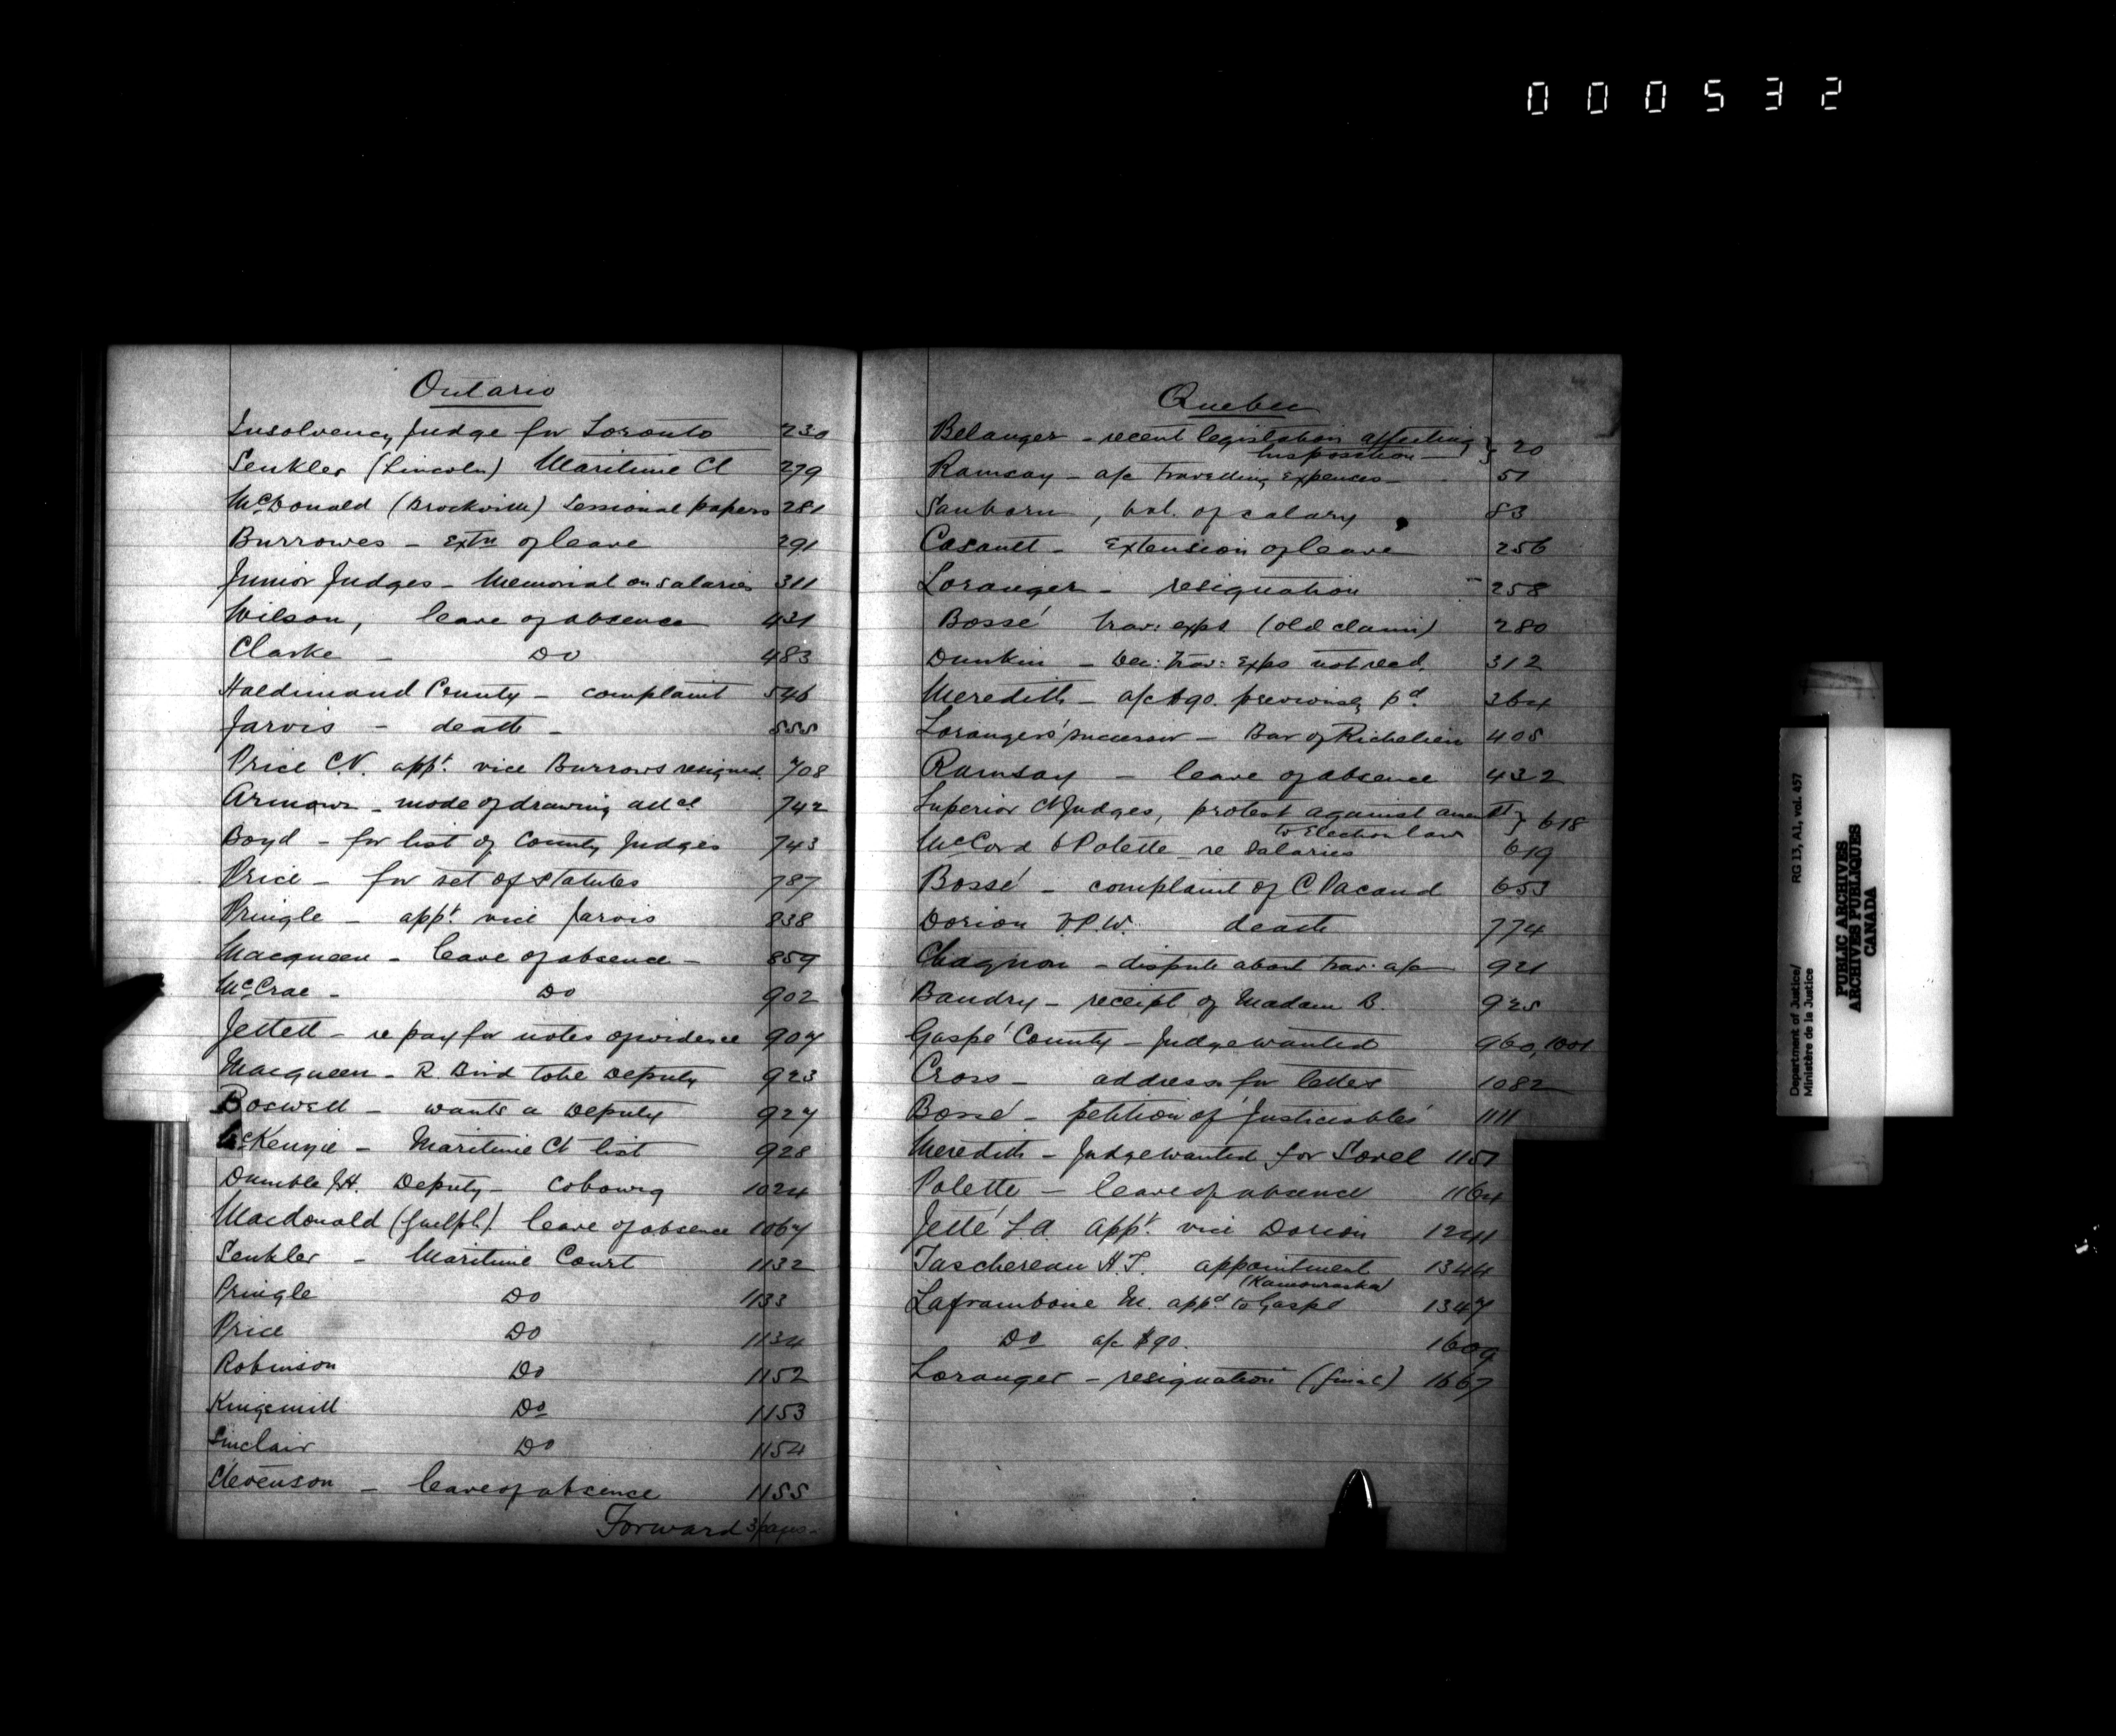 000532
Ontario
Insolvency Judge for Toronto 230
Senkler (Lincoln) Maritime Ct 279
McDonald (Brockville) Sessional papers 281
Burrowes - Extn of leave 291
Junior Judges - Memorial on salaries 311
Wilson, leave of absence 431
Clarke - Do 483
Haldimand County - complaint 546
Jarvis - death - 555
Price C.V. appt. vice Burrows resigned 708
Armour - mode of drawing 742
Boyd - for list of County Judges 743
Price - for set of Statutes 787
Pringle - appt. vice Jarvis 838
Macqueen - leave of absence - 859
McCrae - Do 902
Jellett - re pay for notes of evidence 907
Macqueen - R. Bird to be Deputy 923
Boswell - wants a Deputy 927
McKenzie - Maritime Ct list 928
Dumble J.H. Deputy - Cobourg 1024
Macdonald (Guelph) leave of absence 1067
Senkler - Maritime Court 1132
Pringle Do 1133
Price Do 1134
Robinson Do 1152
Kingsmill Do 1153
Sinclair Do 1154
Stevenson - leave of absence 1155
Forward 3 pages -
Quebec
Belanger - recent legislation affecting
his position - } 20
Ramsay - a/c travelling expences - 51
Sanborn, bal. of salary 83
Casault - Extension of leave 256
Loranger - resignation 258
Bossé trav: exps (old claim) 280
Dunkin - trav: exps not recd. 312
Meredith - a/c $90. previously pd. 364
Loranger's successor - Bar of Richelieu 405
Ramsay - leave of absence 432
Superior Ct Judges, protest against amendt
to Election law } 618
McCord & Polette - re Salaries 619
Bossé - complaint of C. Pacaud 653
Dorion V.P.W. death 774
Chagnon - dispute about trav: a/c 921
Baudry - receipt of Madam B. 925
Gaspé County - Judge wanted 960, 1001
Cross - address for letter 1082
Bossé - petition of 'Justiciables' 1111
Meredith - Judge wanted for Sorel 1151
Polette - leave of absence 1164
Jetté L.A. appt. vice Dorion 1241
Taschereau H.T. appointment 1344
(Kamouraska)
Laframboise M. appd to Gaspé 1347
Do a/c $90. 1609
Loranger - resignation (final) 1667
Department of Justice/
Ministère de la Justice
RG 13, A1, vol. 457
PUBLIC ARCHIVES
ARCHIVES PUBLIQUES
CANADA